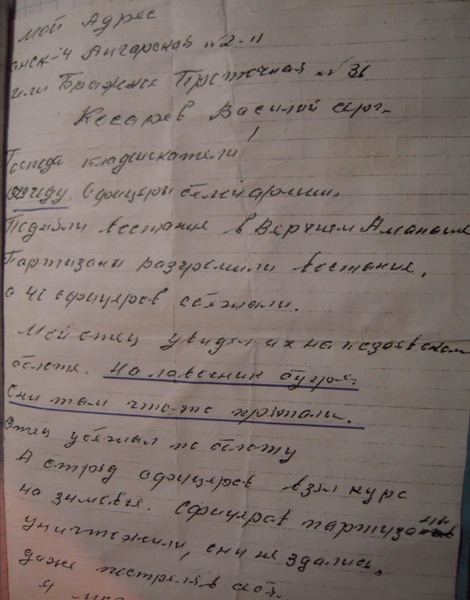 мой Адрес
анск-4 Ангарская № 2-11
или Бражное Проточная № 36
Косарев Василий серг-
Господа кладоискатели
году. Офицеры белой армии.
Подняли восстание в Верхнем Аманаше
Партизаны разгромили востание.
а 40 офицеров сбежали.
Мой отец увидел их на
болоте. На лавочник бугре.
Они там что-то прятали.
Отец убежал по болоту
А отряд офицеров взял курс
на зимовье. Офицеров партизаны
уничтожили, они не здались,
даже постреляв себя.
Я